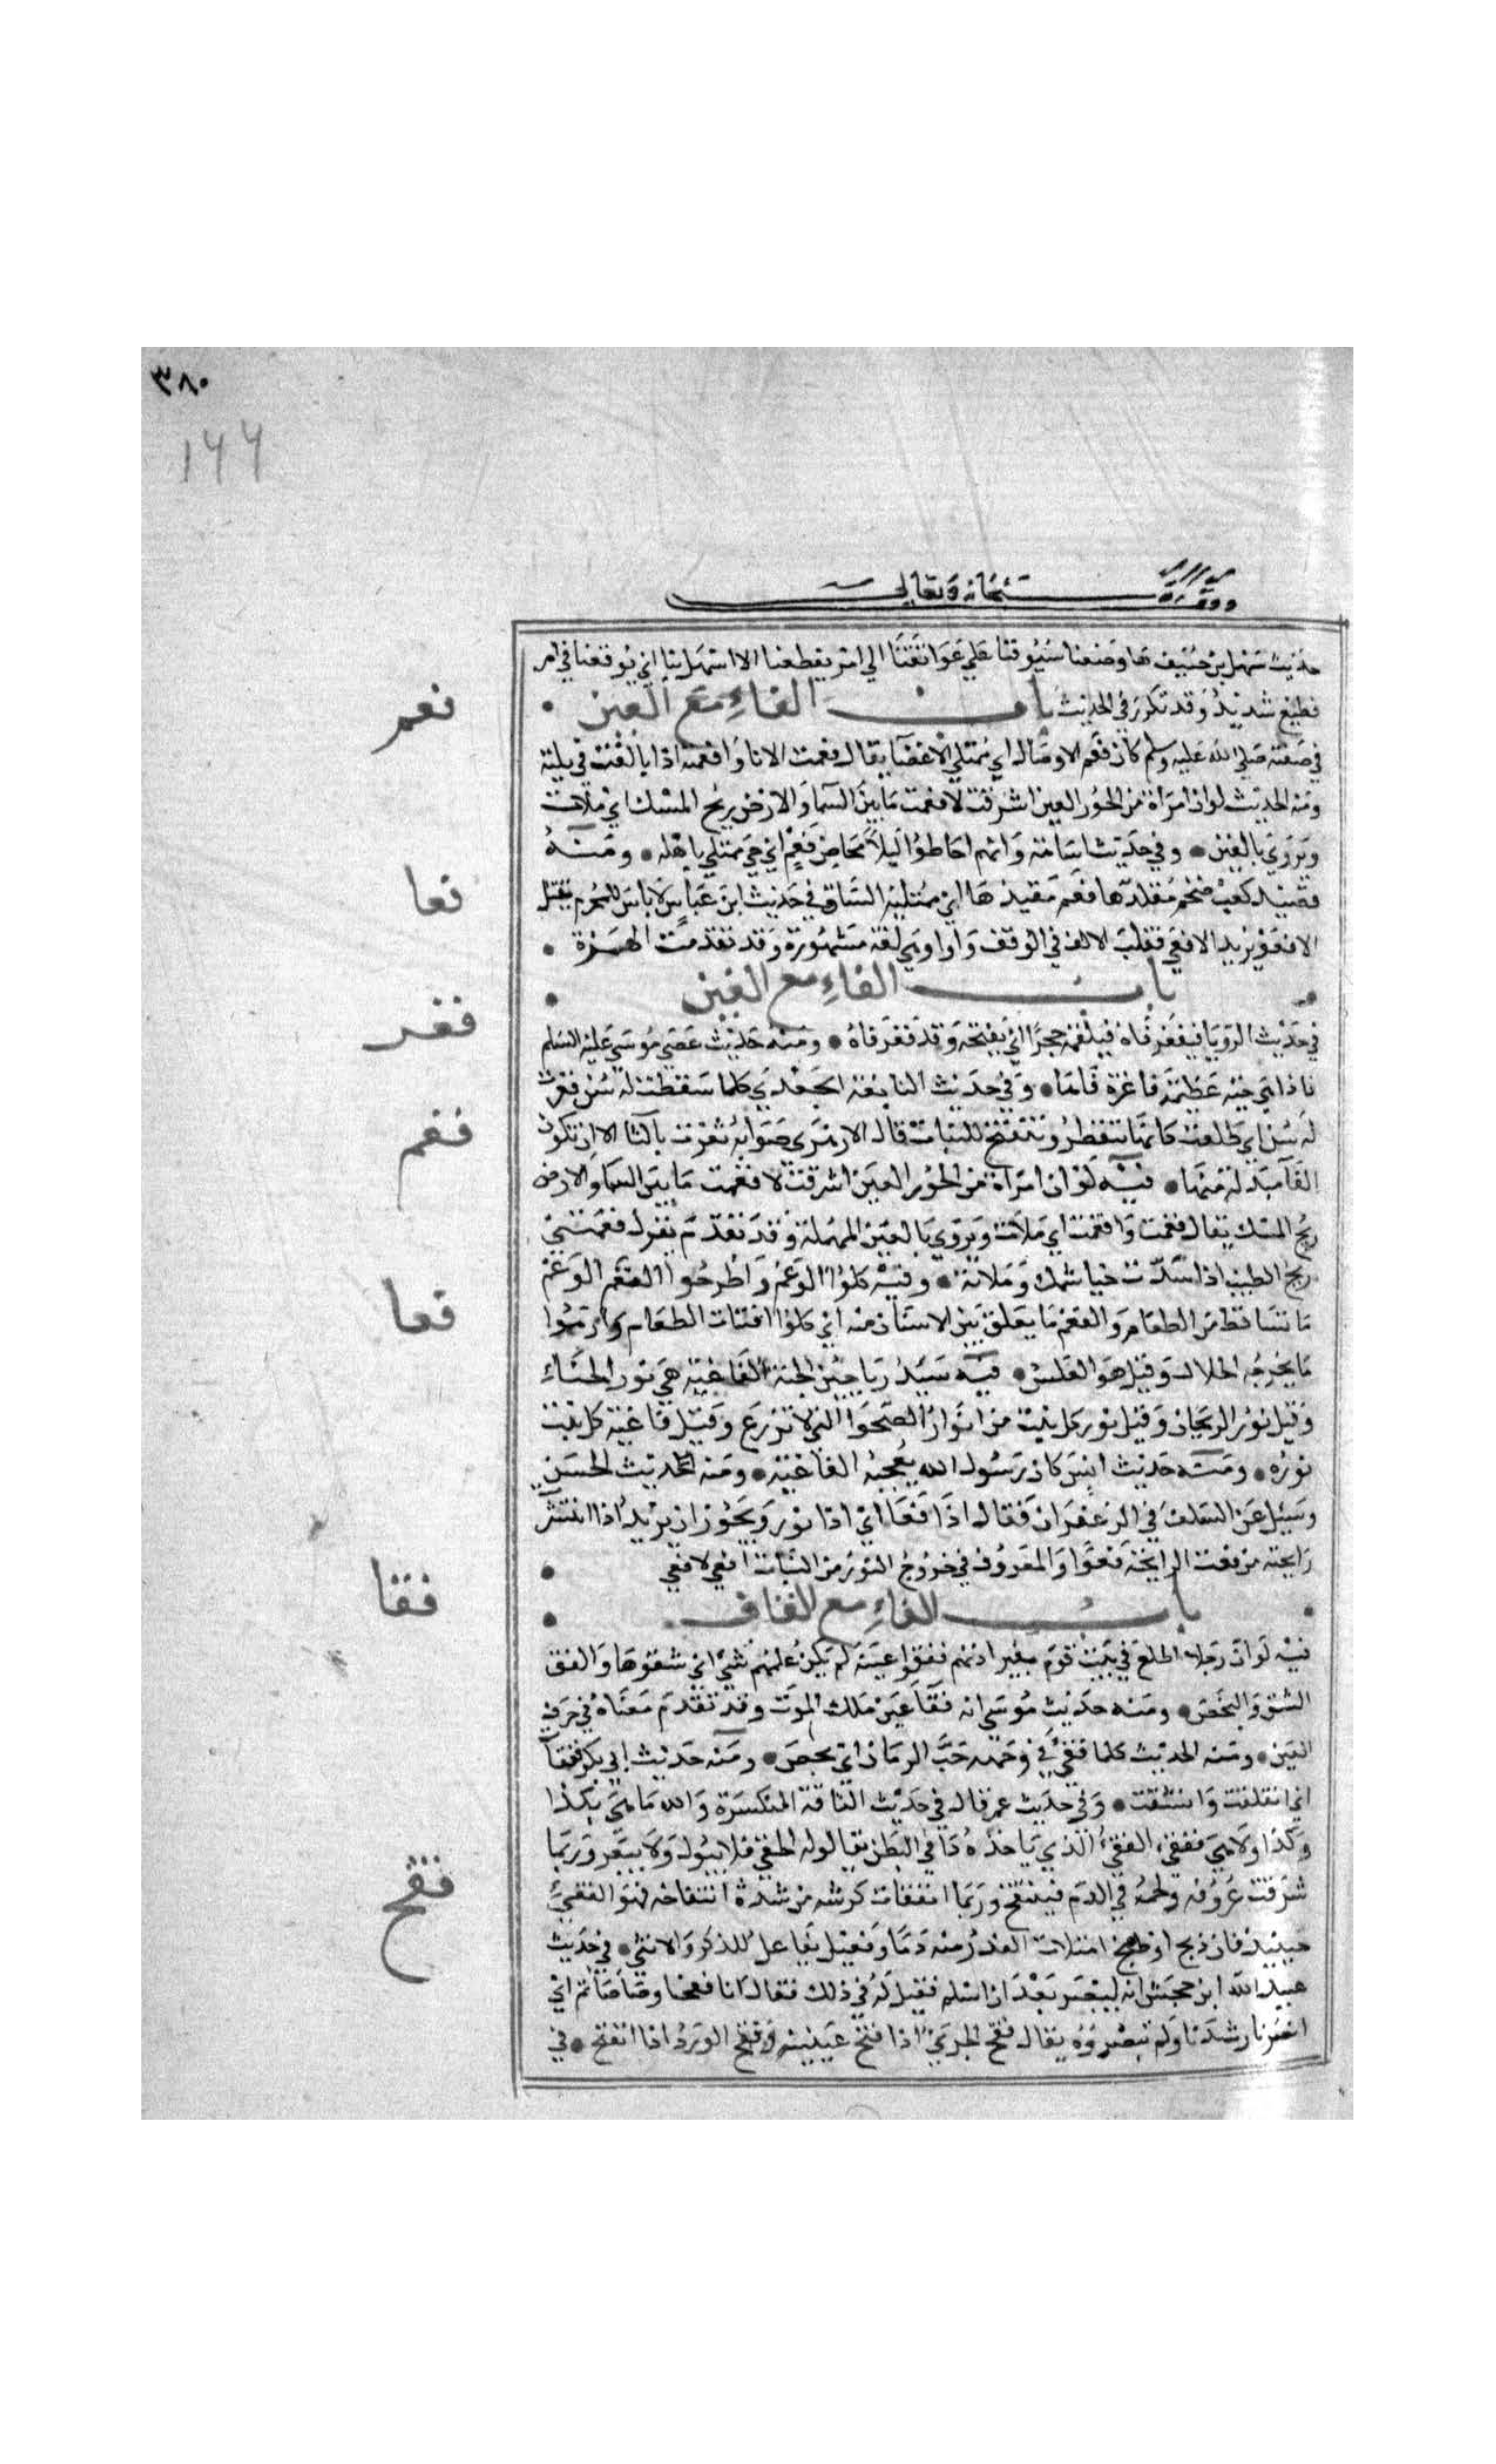 ٣٨٠
١٦٦
سبحانه وتعالى
حديث سهل بن حنيف ما وضعنا سيوفنا على عواتقنا الى امر يفظعنا الا اسهل بنا اي يوقعنا في امر
فظيع شديد وقد تكرر في الحديث باب الفاء مع العين
فعم
في صفته صلى الله عليه وسلم كان فعم الاوصال اي ممتلي الاعضا يقال فعمت الانا وافعمته اذا بالغت في مليته
ومنه الحديث لو ان امراة من الحور العين اشرفت لافعمت ما بين السما والارض ريح المسك اي ملات
ويروي بالغين وفي حديث اسامة وانهم احاطوا ليلا بحاضر فعم اي حي ممتلي باهله ومنه
فعا
قصيد كعب ضخم مقلدها فعم مقيدها اي ممتلية الساق في حديث ابن عباس لا باس للمحرم بقتل
الافعو يريد الافعي فقلب الالف في الوقف واوا وهي لغة مشهورة وقد تقدمت الهمزة
باب الفاء مع الغين
فغر
في حديث الرويا فيفغر فاه فيلقمه حجرا اي يفتحه وقد فغر فاه ومنه حديث عصي موسي عليه السلم
فاذا هي حية عظيمة فاغرة فاها وفي حديث النابغة الجعدي كلما سقطت له سن فغرت
له سن اي طلعت كانها تتفطر وتتفتح للنبات قال الازهري صوابه ثغرت بالثا الا ان تكون
فغم
الفا مبدلة منها فيه لو ان امراة من الحور العين اشرفت لافغمت ما بين السما والارض
ريح المسك يقال فغمت وافغمت اي ملات ويروي بالعين المهملة وقد تقدم تقول فغمتني
ريح الطيب اذا سدت خياشمك وملاته وفيه كلوا الوغم واطرحوا الفغم الوغم
فغا
ما تساقط من الطعام والفغم ما يعلق بين الاسنان منه اي كلوا فتات الطعام وارموا
ما يخرجه الخلال وقيل هو العكس فيه سيد رياحين الجنة الفاغية هي نور الحناء
وقيل نور الريحان وقيل نور كل نبت من انوار الصحرا التي لا تزرع وقيل فاغية كل نبت
نوره ومنه حديث انس كان رسول الله يعجبه الفاغية ومنه الحديث الحسن
وسيل عن السلف في الزعفران فقال اذا فغا اي اذا نور ويجوز ان يريد اذا انتشر
رايحته من فغت الرايحة فغوا والمعروف في خروج النور من النبات افغي لا فغي
باب الفاء مع القاف
فقا
فيه لو ان رجلا اطلع في بيت قوم بغير اذنهم ففقوا عينه لم يكن عليهم شي اي شقوها والفق
الشق والبخص ومنه حديث موسي انه فقا عين ملك الموت وقد تقدم معناه في حرف
العين ومنه الحديث كلما فقي في وجهه حب الرمان اي بخص ومنه حديث ابي بكر تفقات
اي انفلقت وانشقت وفي حديث عمر قال في حديث الناقة المنكسرة والله ما هي بكذا
وكذا ولا هي بفقي الفقي الذي ياخذه دا في البطن يقال له الحقي فلا يبول ولا يبعر وربما
فقح
شرقت عروقه ولحمه في الدم فينتفخ وربما انفقات كرشه من شدة انتفاخه فهو الفقي
حينيذ فان ذبح او طبخ امتلات القدر منه دما وفعيل يقال للذكر والانثي في حديث
عبيد الله ابن جحش انه تنصر بعد ان اسلم فقيل له في ذلك فقال انا فقحنا وصاصاتم اي
ابصرنا رشدنا ولم تبصروه يقال فقح الجرو اذا فتح عينيه وفقح الورد اذا انفتح في